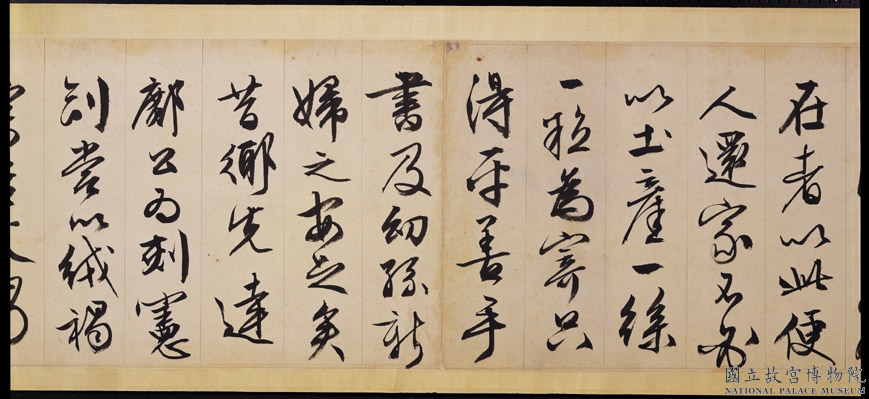 在者以此便
人還家不必
以土產一絲
一粒為寄只
得平善手
書及幼孫新
婦之安足矣
昔鄉先達
鄺公為憲
嘗以絨褐
國立故宮博物院
NATIONAL PALACE MUSEUM